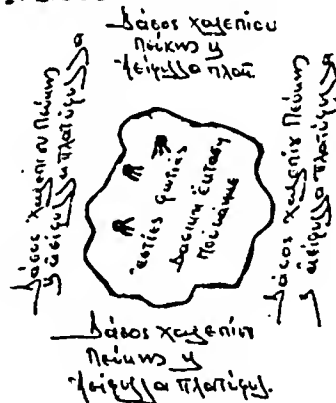 Δάσος χαλεπίου
Πεύκης ή
Δάσος χαλεπίου Πεύκης
ή ἀείφυλλα πλατύφυλλα
ἑστίες φωτιᾶς
Δασική Ἐκταση
Δάσος χαλεπίου Πεύκης
ή ἀείφυλλα πλατύφυλλα
Δάσος χαλεπίου
Πεύκης ή
Ἀείφυλλα πλατύφυλ.